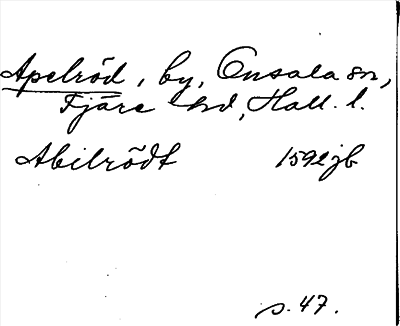 Apelröd, by, Onsala sn,
Fjäre hd, Hall. l.
Abilrödt 1592 jb
s. 47.